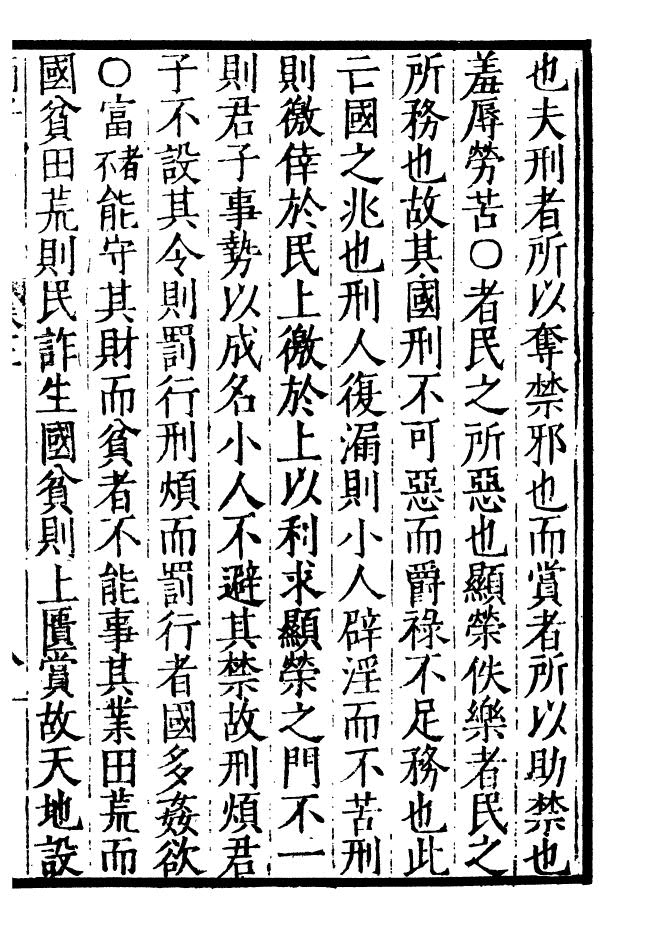 也夫刑者所以奪禁邪也而賞者所以助禁也
羞辱勞苦○者民之所惡也顯榮佚樂者民之
所務也故其國刑不可惡而爵祿不足務也此
亡國之兆也刑人復漏則小人辟淫而不苦刑
則徼倖於民上徼於上以利求顯榮之門不一
則君子事勢以成名小人不避其禁故刑煩君
子不設其令則罰行刑煩而罰行者國多姦欲
○富者不能守其財而貧者不能事其業田荒而
國貧田荒則民詐生國貧則上匱賞故天地設